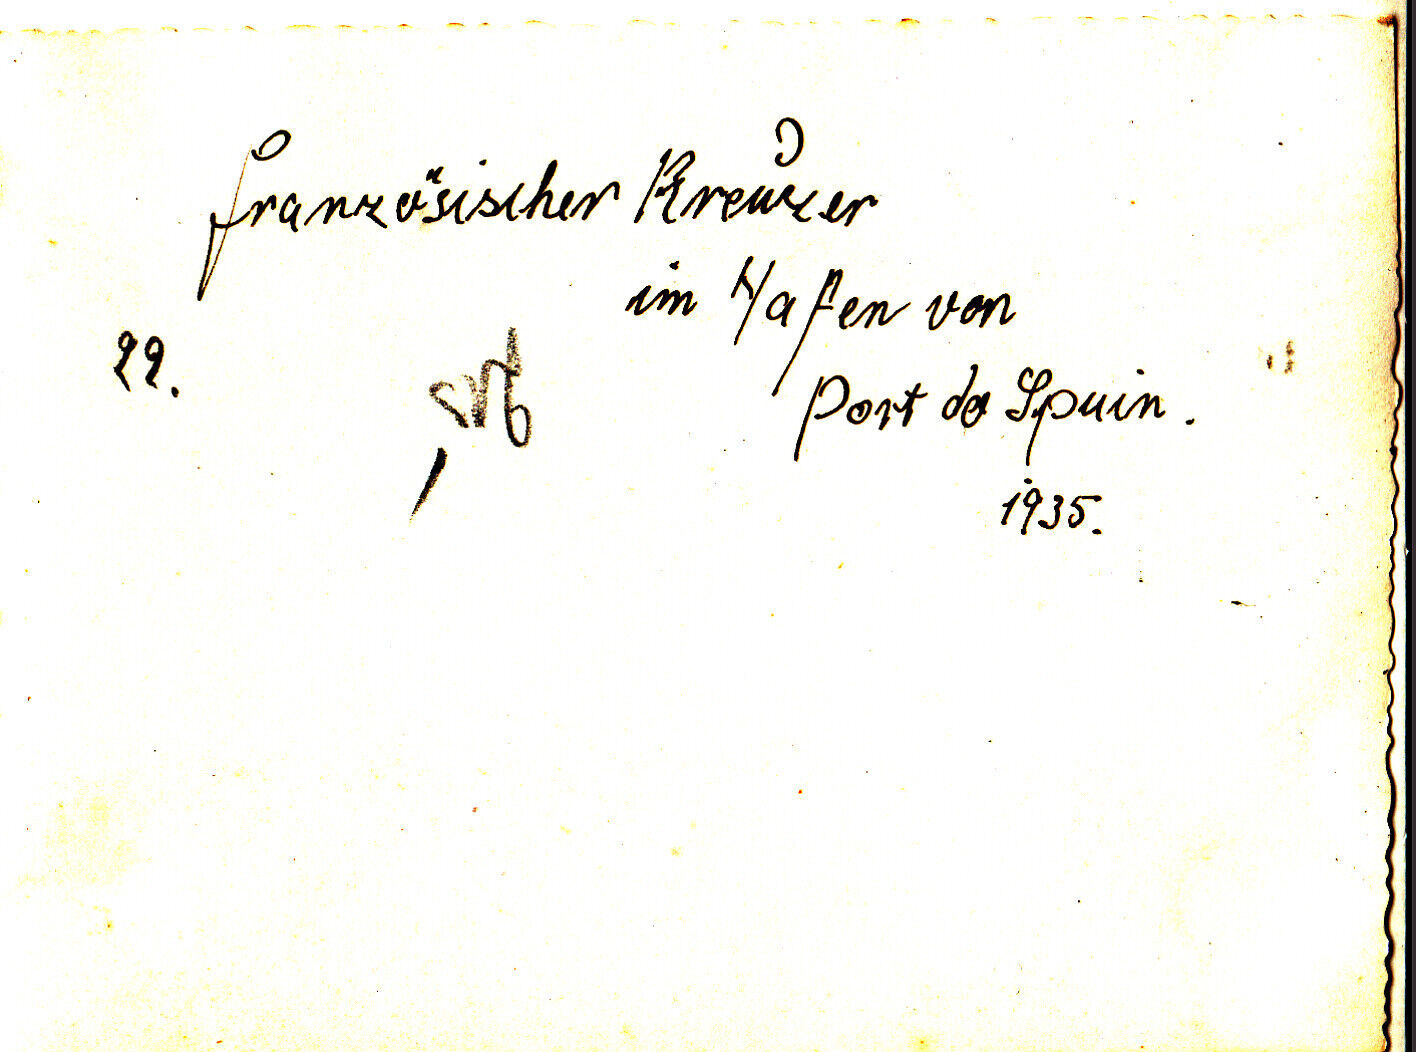 französischer Kreuzer
im Hafen von
22.
Port da Spuin.
1935.